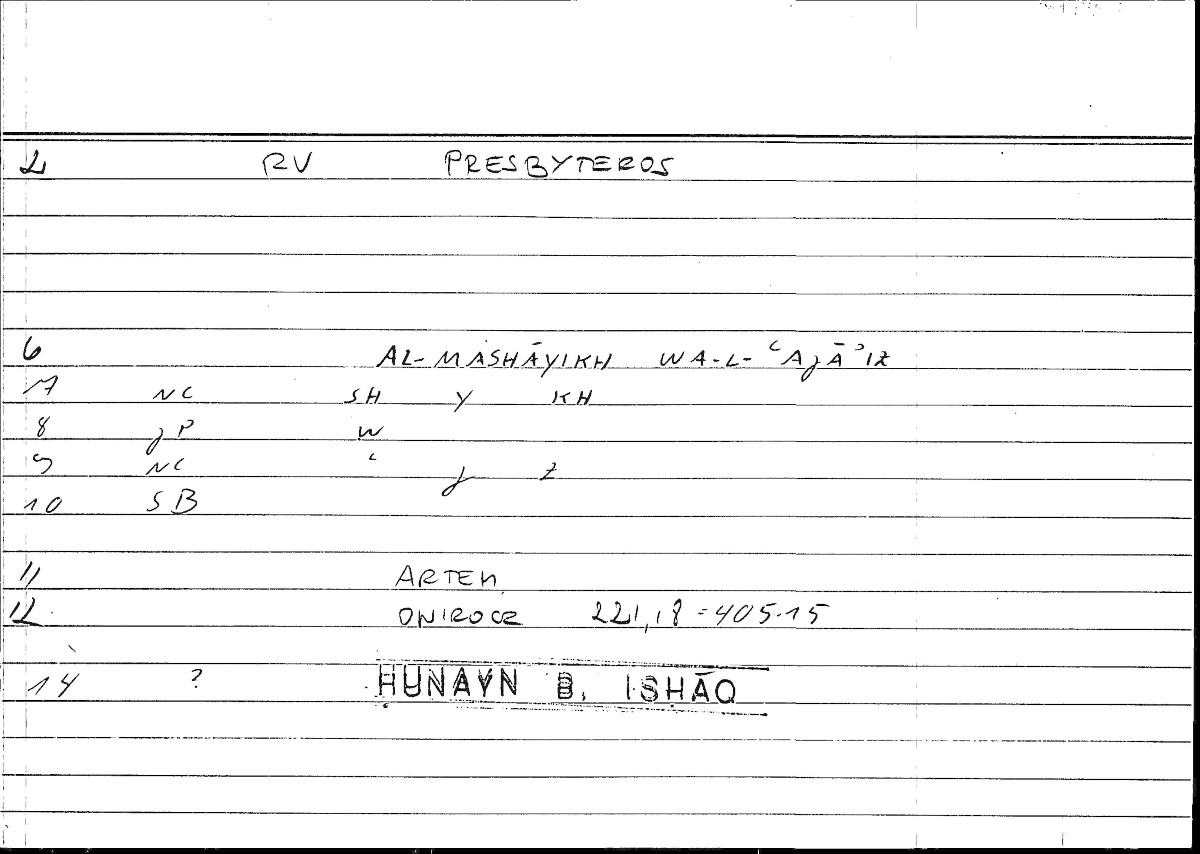 2 RV PRESBYTEROS
6 AL-MASHĀYIKH WA-L-ʿAjĀʾIZ
7 NC SH Y KH
8 jP W
9 NC ʿ j Z
10 SB
11 ARTEM
12 ONIROCR 221,18 = 405.15
14 ? ḤUNAYN B. ISḤĀQ